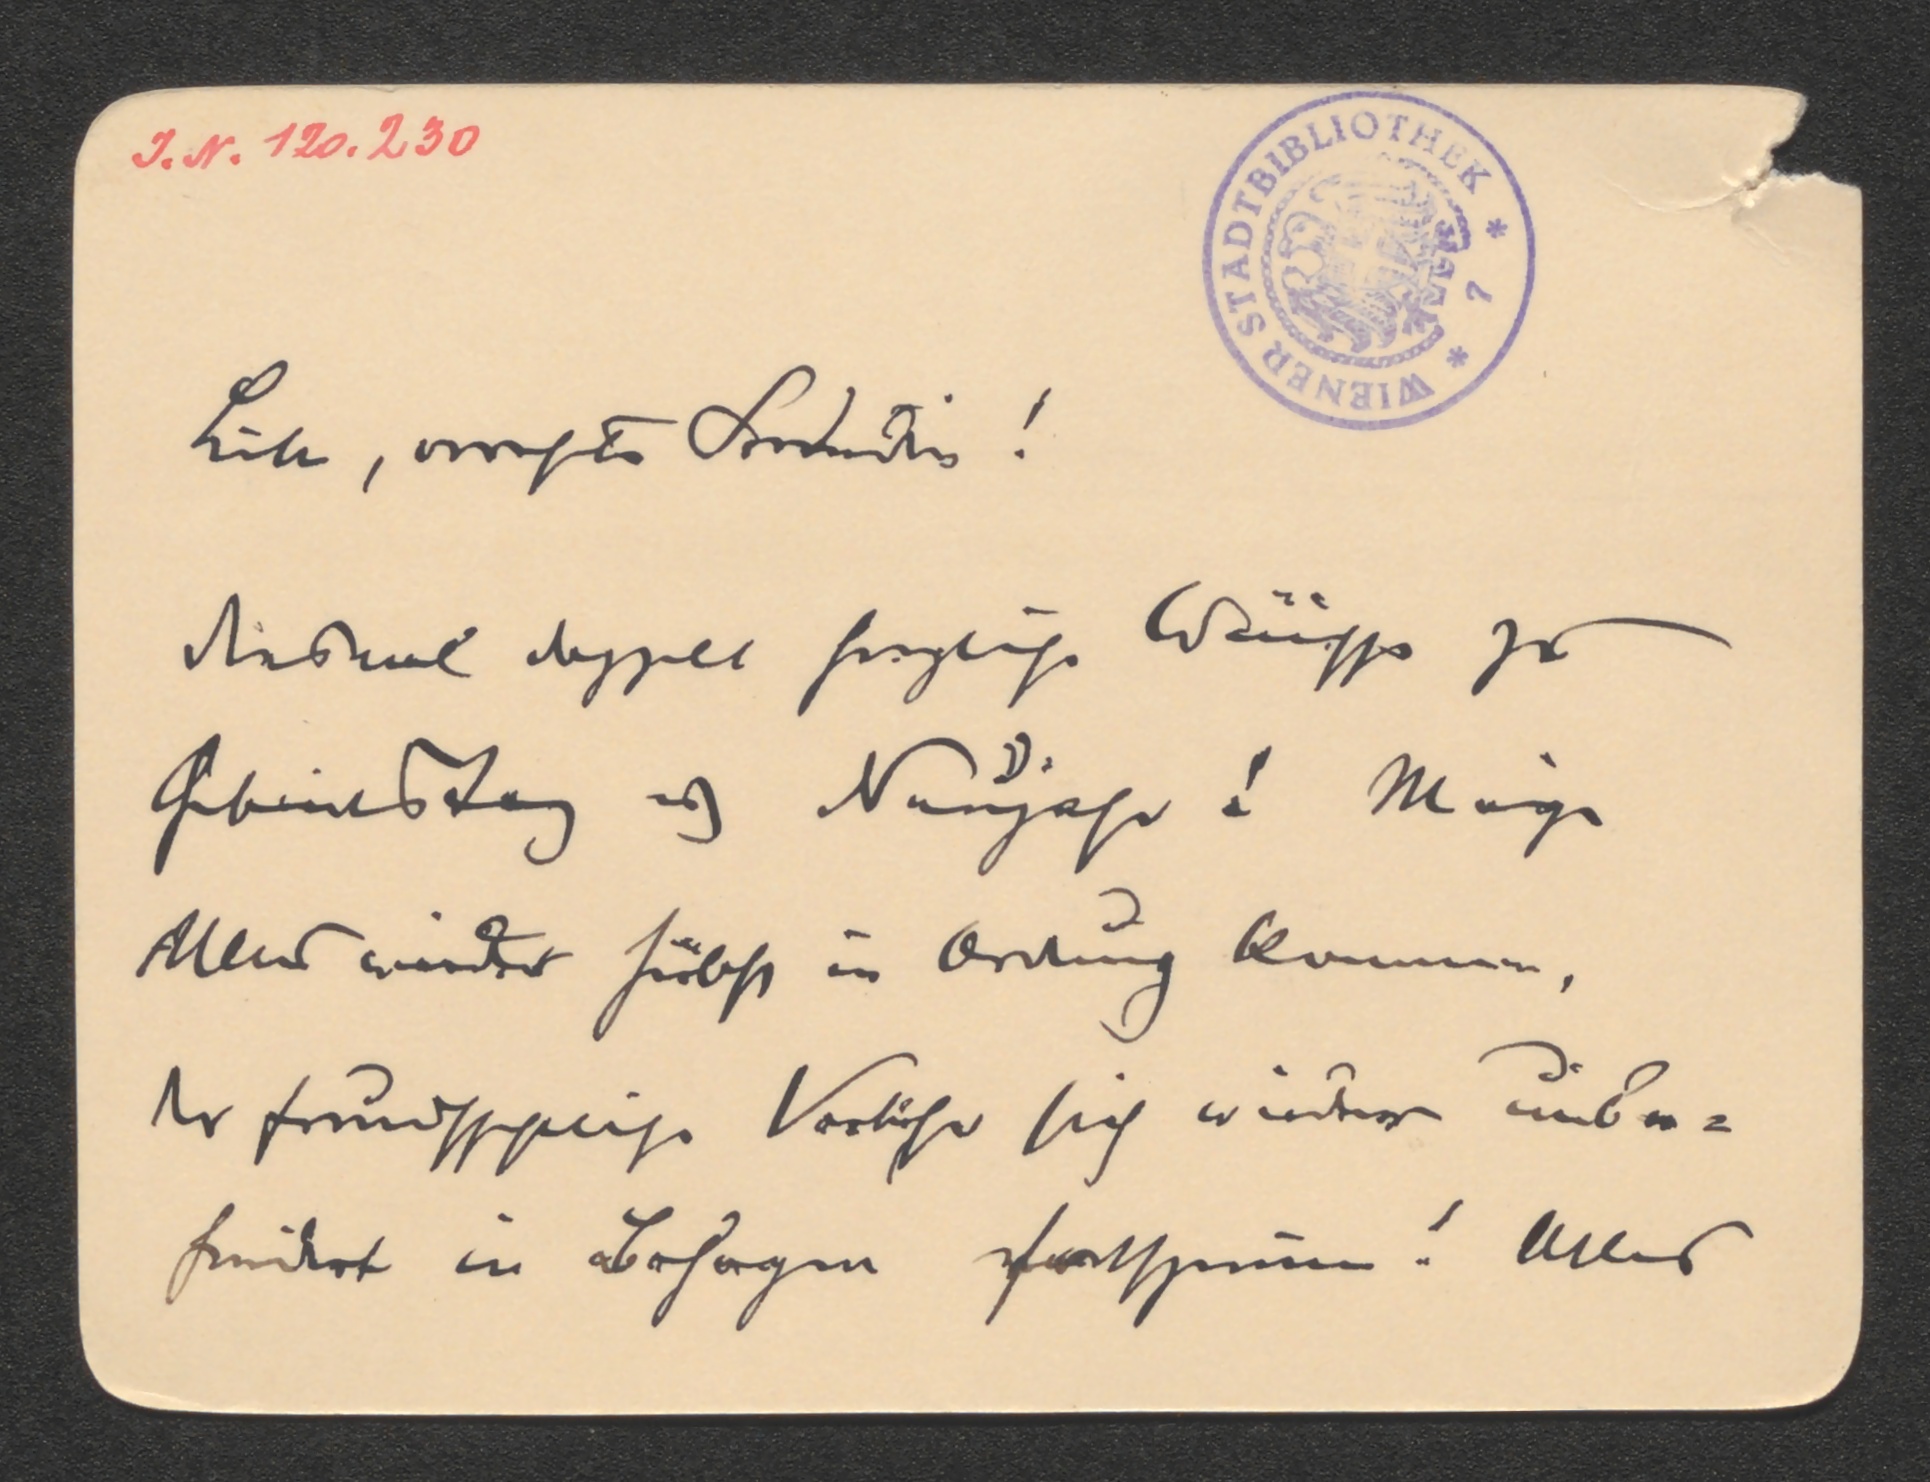 I.N. 120.230
WIENER STADTBIBLIOTHEK * 7 *
Liebe, verehrte Freundin!
diesmal doppelt herzliche Wünsche zu
Geburtstag u Neujahr! Möge
Alles wieder hübsch in Ordnung kommen,
der freundschaftliche Verkehr sich wieder unbe=
hindert in Behagen fortspinnen! Alles